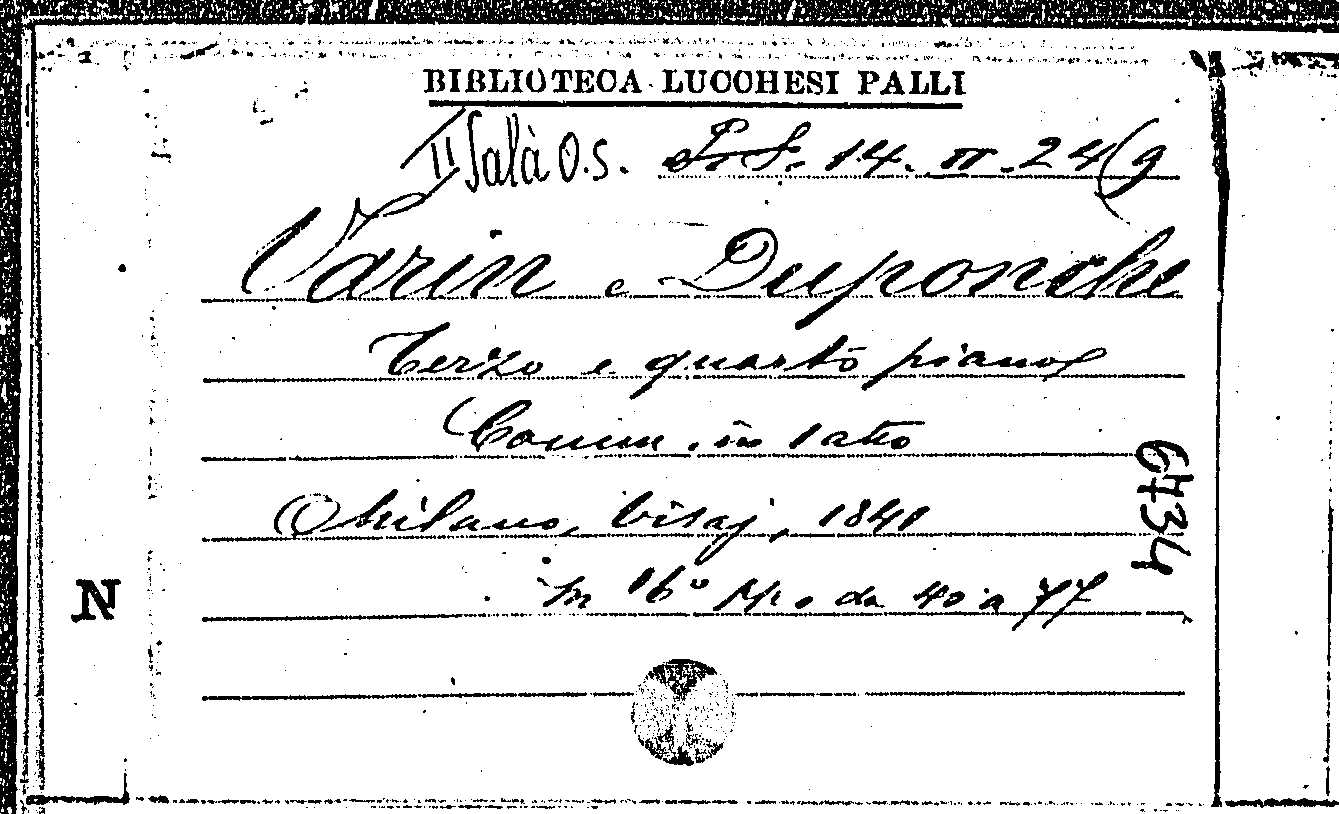 BIBLIOTECA LUCCHESI PALLI
II Sala O.S. 14. II. 24(9
Varin e Duponche
Terzo e quarto piano
Comm. in 1 atto
Milano, Visaj, 1841
in 16° da 40 a 77
6734
N